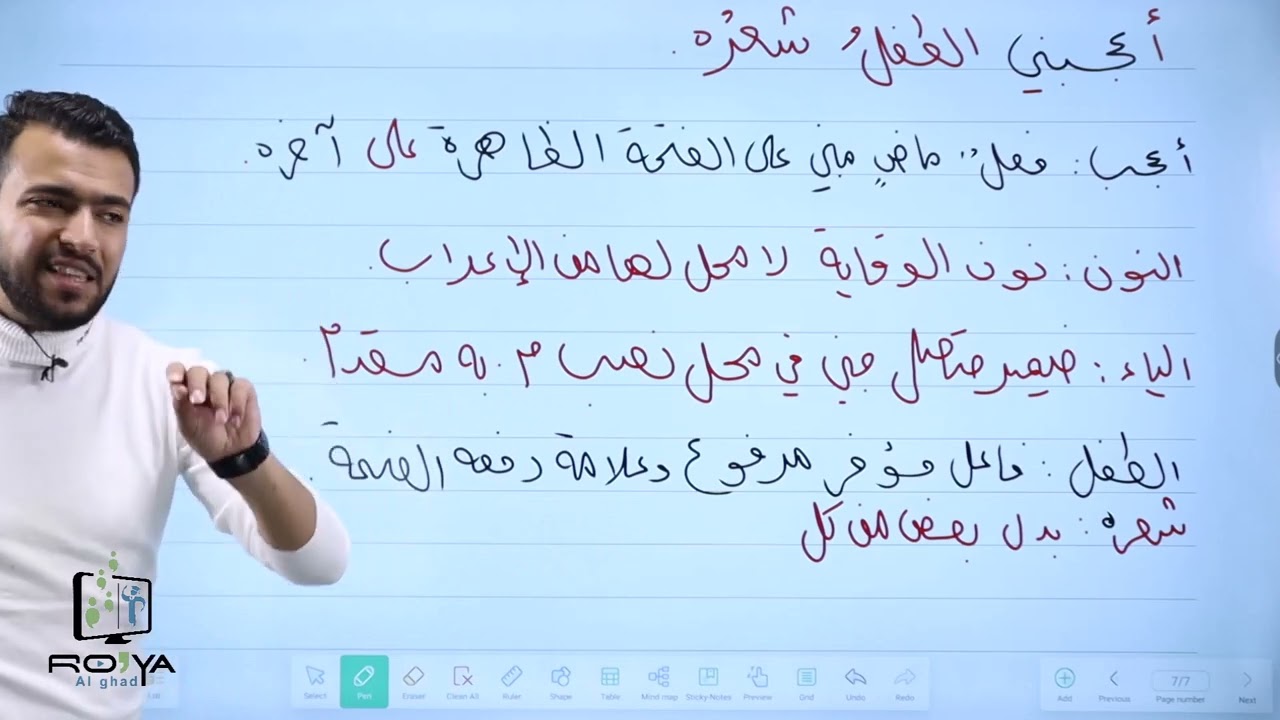 أعجبني الطفلُ شعرُه.
أعجب: فعلٌ ماضٍ مبني على الفتحة الظاهرة على آخره.
النون: نون الوقاية لا محل لها من الإعراب.
الياء: ضمير متصل مبني في محل نصب م. به مقدم.
الطفل: فاعل مؤخر مرفوع وعلامة رفعه الضمة.
شعره: بدل بعض من كل
RO'YA
Al ghad
Select
Pen
Eraser
Clean All
Ruler
Shape
Table
Mind map
Sticky Notes
Preview
Grid
Undo
Redo
Add
Previous
7/7
Page number
Next